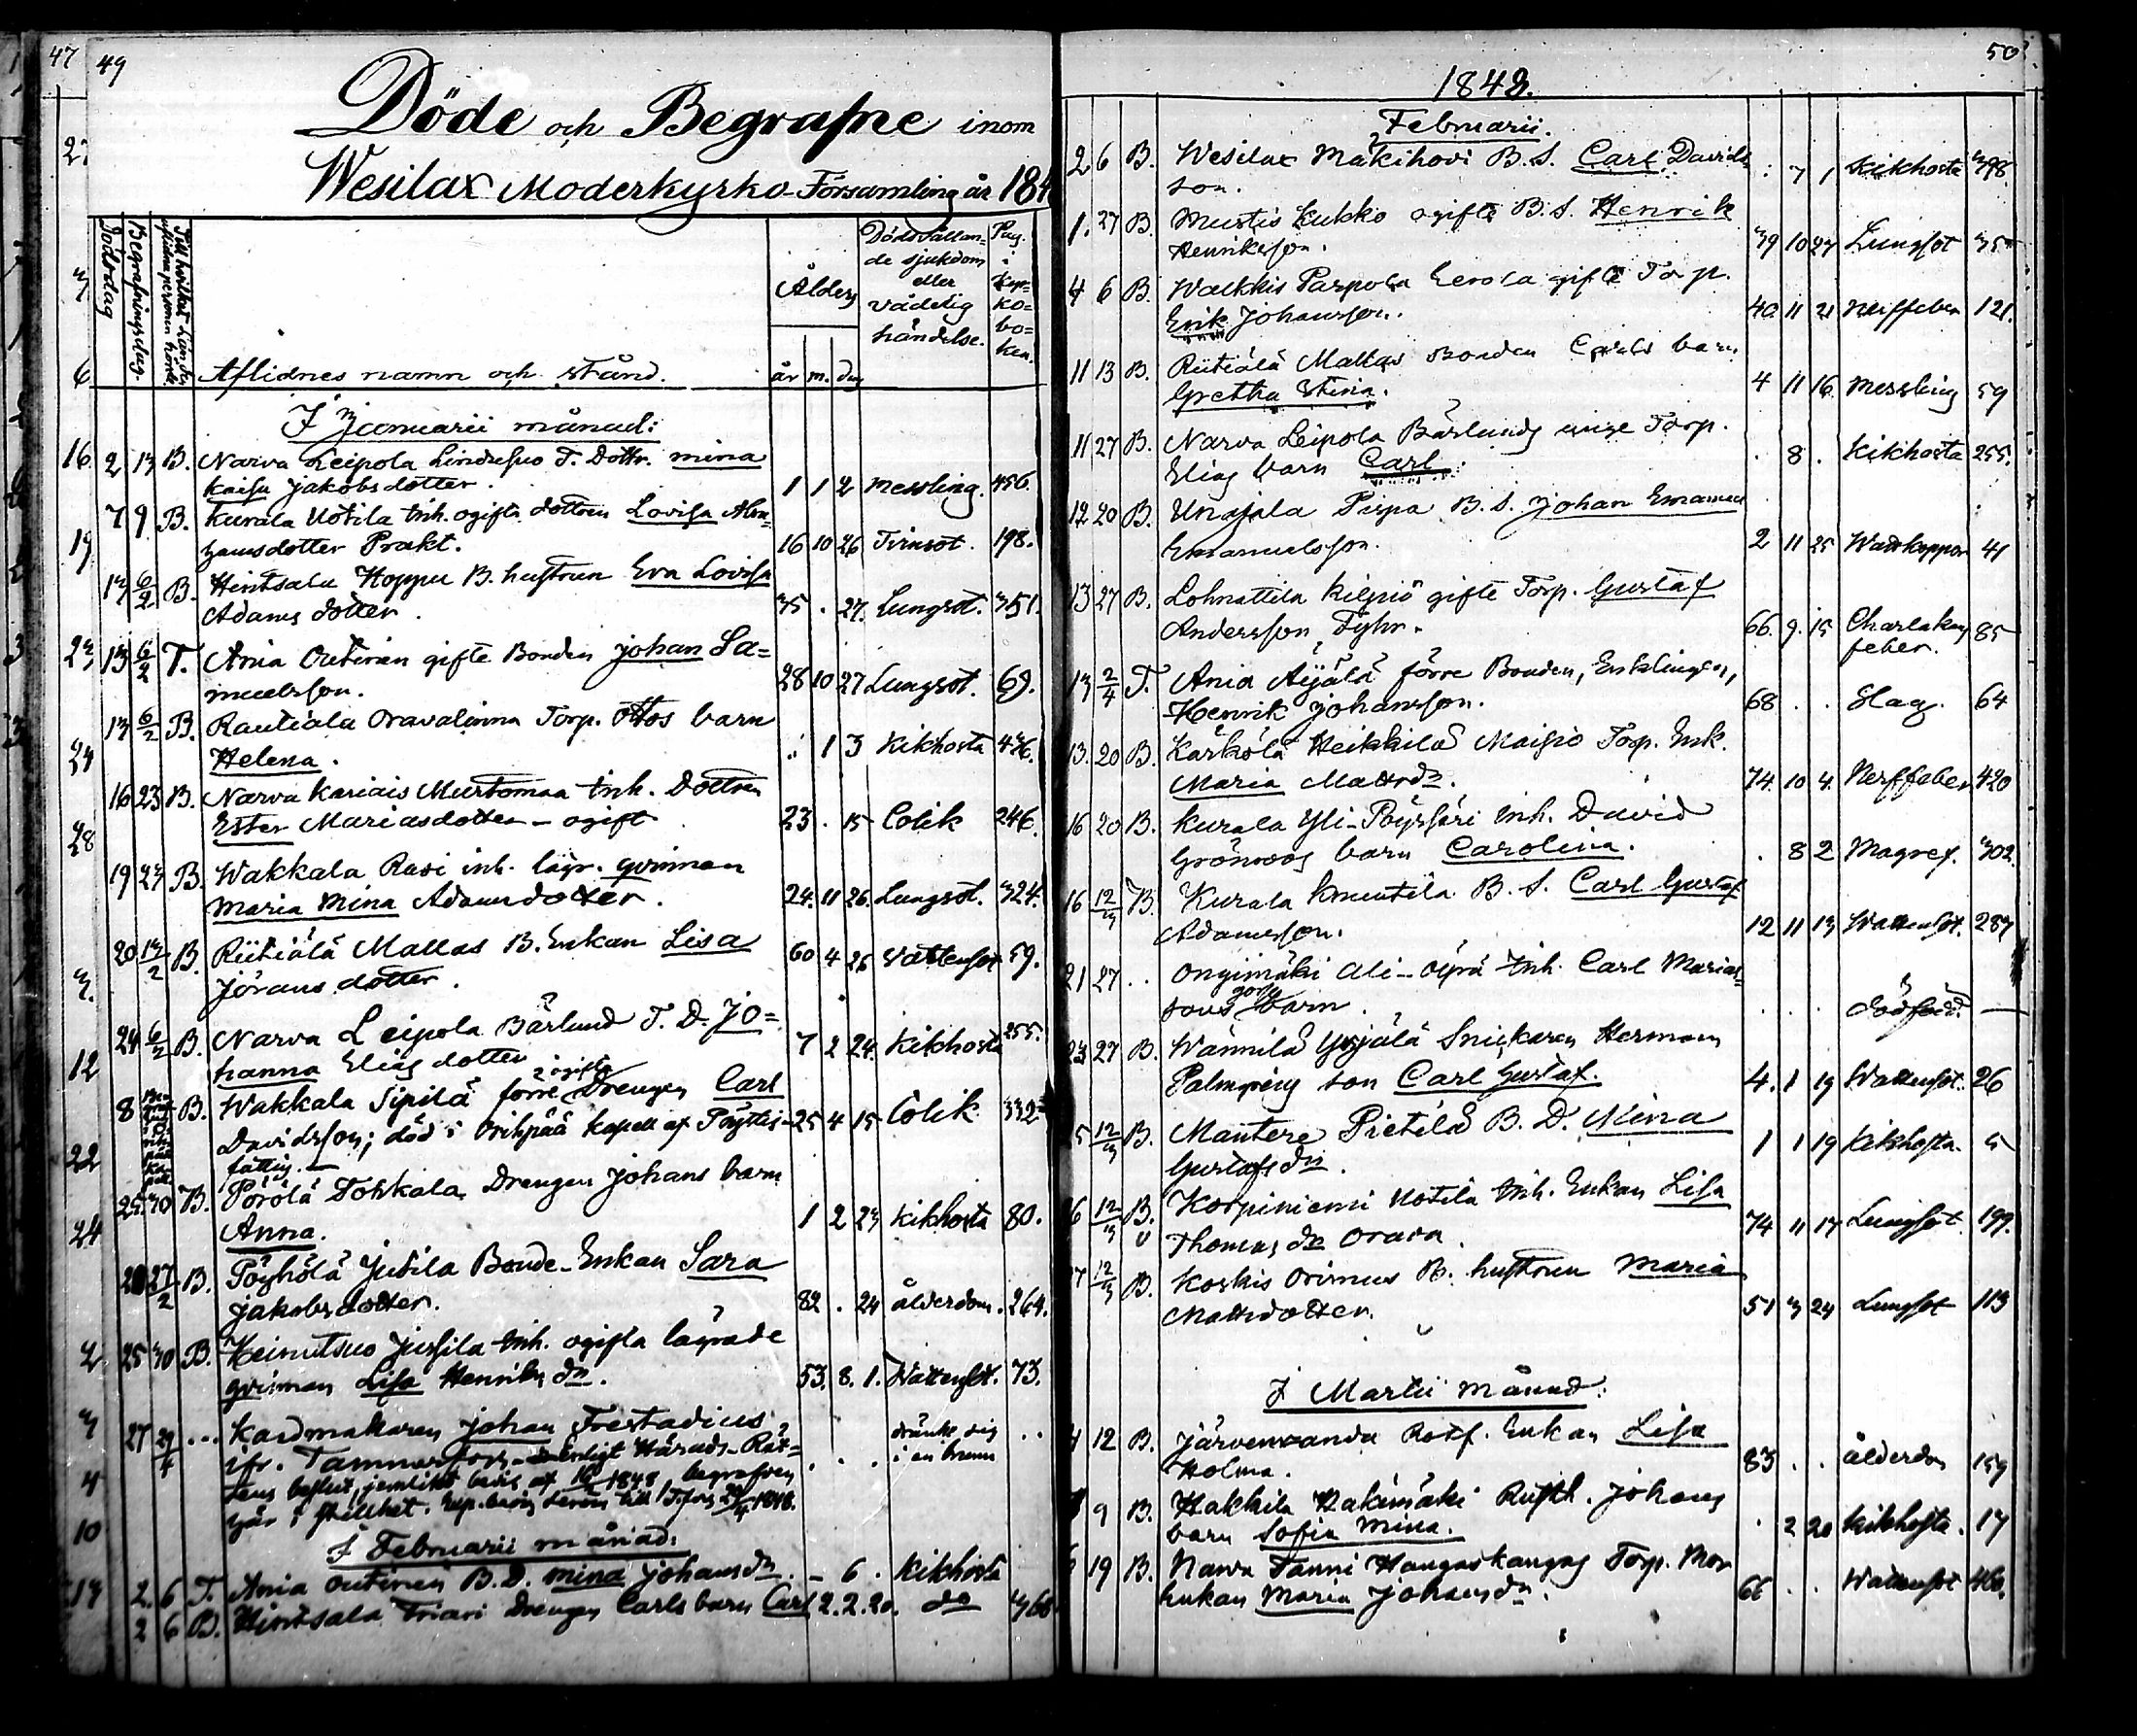 47 49
Döde och Begrafne inom
Wesilax Moderkyrko-Församling år 184
Dödsdag
Begrafningsdag.
Aflidnes namn och stånd.
Ålder
år m. dag
Dödsvållan-
de sjukdom
eller
vådelig
händelse.
Pag.
i
ko-
bo-
ken.
I Januarii månad:
2 13 B. Narva Leipola T. Dottr. Mina
Kaisa Jakobsdotter. 1 1 2 Messling. 456.
7 9 B. Kurala Uotila Inh. ogifta dottren Lovisa Abra-
hamsdotter Prakt. 16 10 26 Tvinsot. 198.
13 6/2 B. Hintsala Hoppu B. hustrun Eva Lovisa
Adams dotter. 35 . 27. Lungsot. 351.
13 6/2 T. Ania Outinen gifte Bonden Johan Sa-
muelsson. 28 10 27 Lungsot. 69.
13 6/2 B. Rautiala Oravalinna Torp. Ottos barn
Helena. .. 1 3 Kikhosta 436.
16 23 B. Narva Kariais Murtomaa Inh. Dottren
Ester Mariasdotter - ogift 23 . 15 Colik 246.
19 23 B. Wakkala Rasi inh. lägr. qvinnan
Maria Mina Adamsdotter. 24. 11 26. Lungsot. 324.
20 13/2 B. Riitiälä Mallas B. Enkan Lisa
Jörans dotter. 60 4 26 Wattensot 59.
24 6/2 B. Narva Leipola Bärlund T. D. Jo-
hanna Elias dotter 7 2 24. Kikhosta 255.
8 B. Wakkala Sipilä förre ogifta Drengen Carl
Davidsson; död i Oripää kapell af Pöytis- 25 4 15 Colik 332
fattig.
25 30 B. Pörölä Tokkala Drengen Johans barn
Anna. 1 2 23 Kikhosta 80.
27/2 B. Pöyhölä Jutila Bonde-Enkan Sara
Jakobsdotter. 82 . 24 ålderdom. 264.
25 30 B. Keinutsuo Jussila Inh. ogifta lägrade
qvinnan Lisa Henriks dr. 53. 8. 1. Wattensot. 73.
27 29/4 ... Kardmakaren Johan Frestadius,
ifr. Tammerfors - enligt Härads-Rät- . . . dränkt sig
tens beslut, jemlikt bevis af 1848 begrafven i en brunn ..
här i stillhet.
I Februarii månad:
2. 6 T. Ania Outinen B. D. Mina Johansdr. - 6 . Kikhosta
2 6 B. Hintsala Friari Drengen Carls barn Carl 2. 2. 20. do 368
50
1848.
Februarii.
2 6 B. Wesilax Mäkihovi B. S. Carl Davids-
son. . 7 1 Kikhosta 398.
1. 27 B. Mustis Kukko ogifte B. S. Henrik
Henriksson. 39 10 27 Lungsot 35
4 6 B. Walkkis Parpola Eerola gifte Torp.
Erik Johansson. 40. 11 21 Nerffeber 121.
11 13 B. Riitiälä Mallas Bonden Carls barn
Gretha Stina. 4 11 16 Messling 59
11 27 B. Narva Leipola Bärlunds unge Torp.
Elias barn Carl. . 8 . Kikhosta 255.
12 20 B. Unajala Pirpa B. S. Johan Emanuel
Emanuelsson. 2 11 25 Wattkoppor 41
13 27 B. Lohnattila Kilpiö gifte Torp. Gustaf
Andersson Fyhr. 66. 9. 15 Charlakans
feber. 85
13 2/4 T. Ania Äijälä förre Bonden, Enklingen,
Henrik Johansson. 68 . . Slag. 64
13. 20 B. Kärkölä Heikkilä Maisio Torp. Enk.
Maria Mattsdr. 74. 10 4. Nerffeber 420
16 20 B. Kurala Yli-Pöyssäri Inh. David
Grönroos barn Carolina. . 8 2 Magref. 302.
16 12/3 B. Kurala Knuutila B. S. Carl Gustaf
Adamsson. 12 11 13 Wattensot. 287
21 27 .. Ongimäki Ali-Äyrä Inh. Carl Marias-
sons barn. . . . dödfödd. —
23 27 B. Wännilä Yrjälä Snickaren Herman
Palmqvists son Carl Gustaf. 4. 1 19 Wattensot. 26
5 12/3 B. Mantere Pietilä B. D. Mina
Gustafsdr. 1 1 19 Kikhosta 5
6 12/3 B. Korpiniemi Uotila Inh. Enkan Lisa
Thomas dr Orava. 74 11 17 Lungsot. 199.
7 12/3 B. Koskis Orimus B. hustrun Maria
Mattsdotter. 51 3 24 Lungsot 113
I Martii månad:
4 12 B. Järvenranda Rotf. Enkan Lisa
Holma. 83 . . ålderdom 159
9 B. Hakkila Hakimäki Rusth. Johans
barn Sofia Mina. . 2 20 Kikhosta. 17
19 B. Narva Tanni Haugaskangas Torp. Mor
enkan Maria Johansdr. 66 . . Wattensot 460.